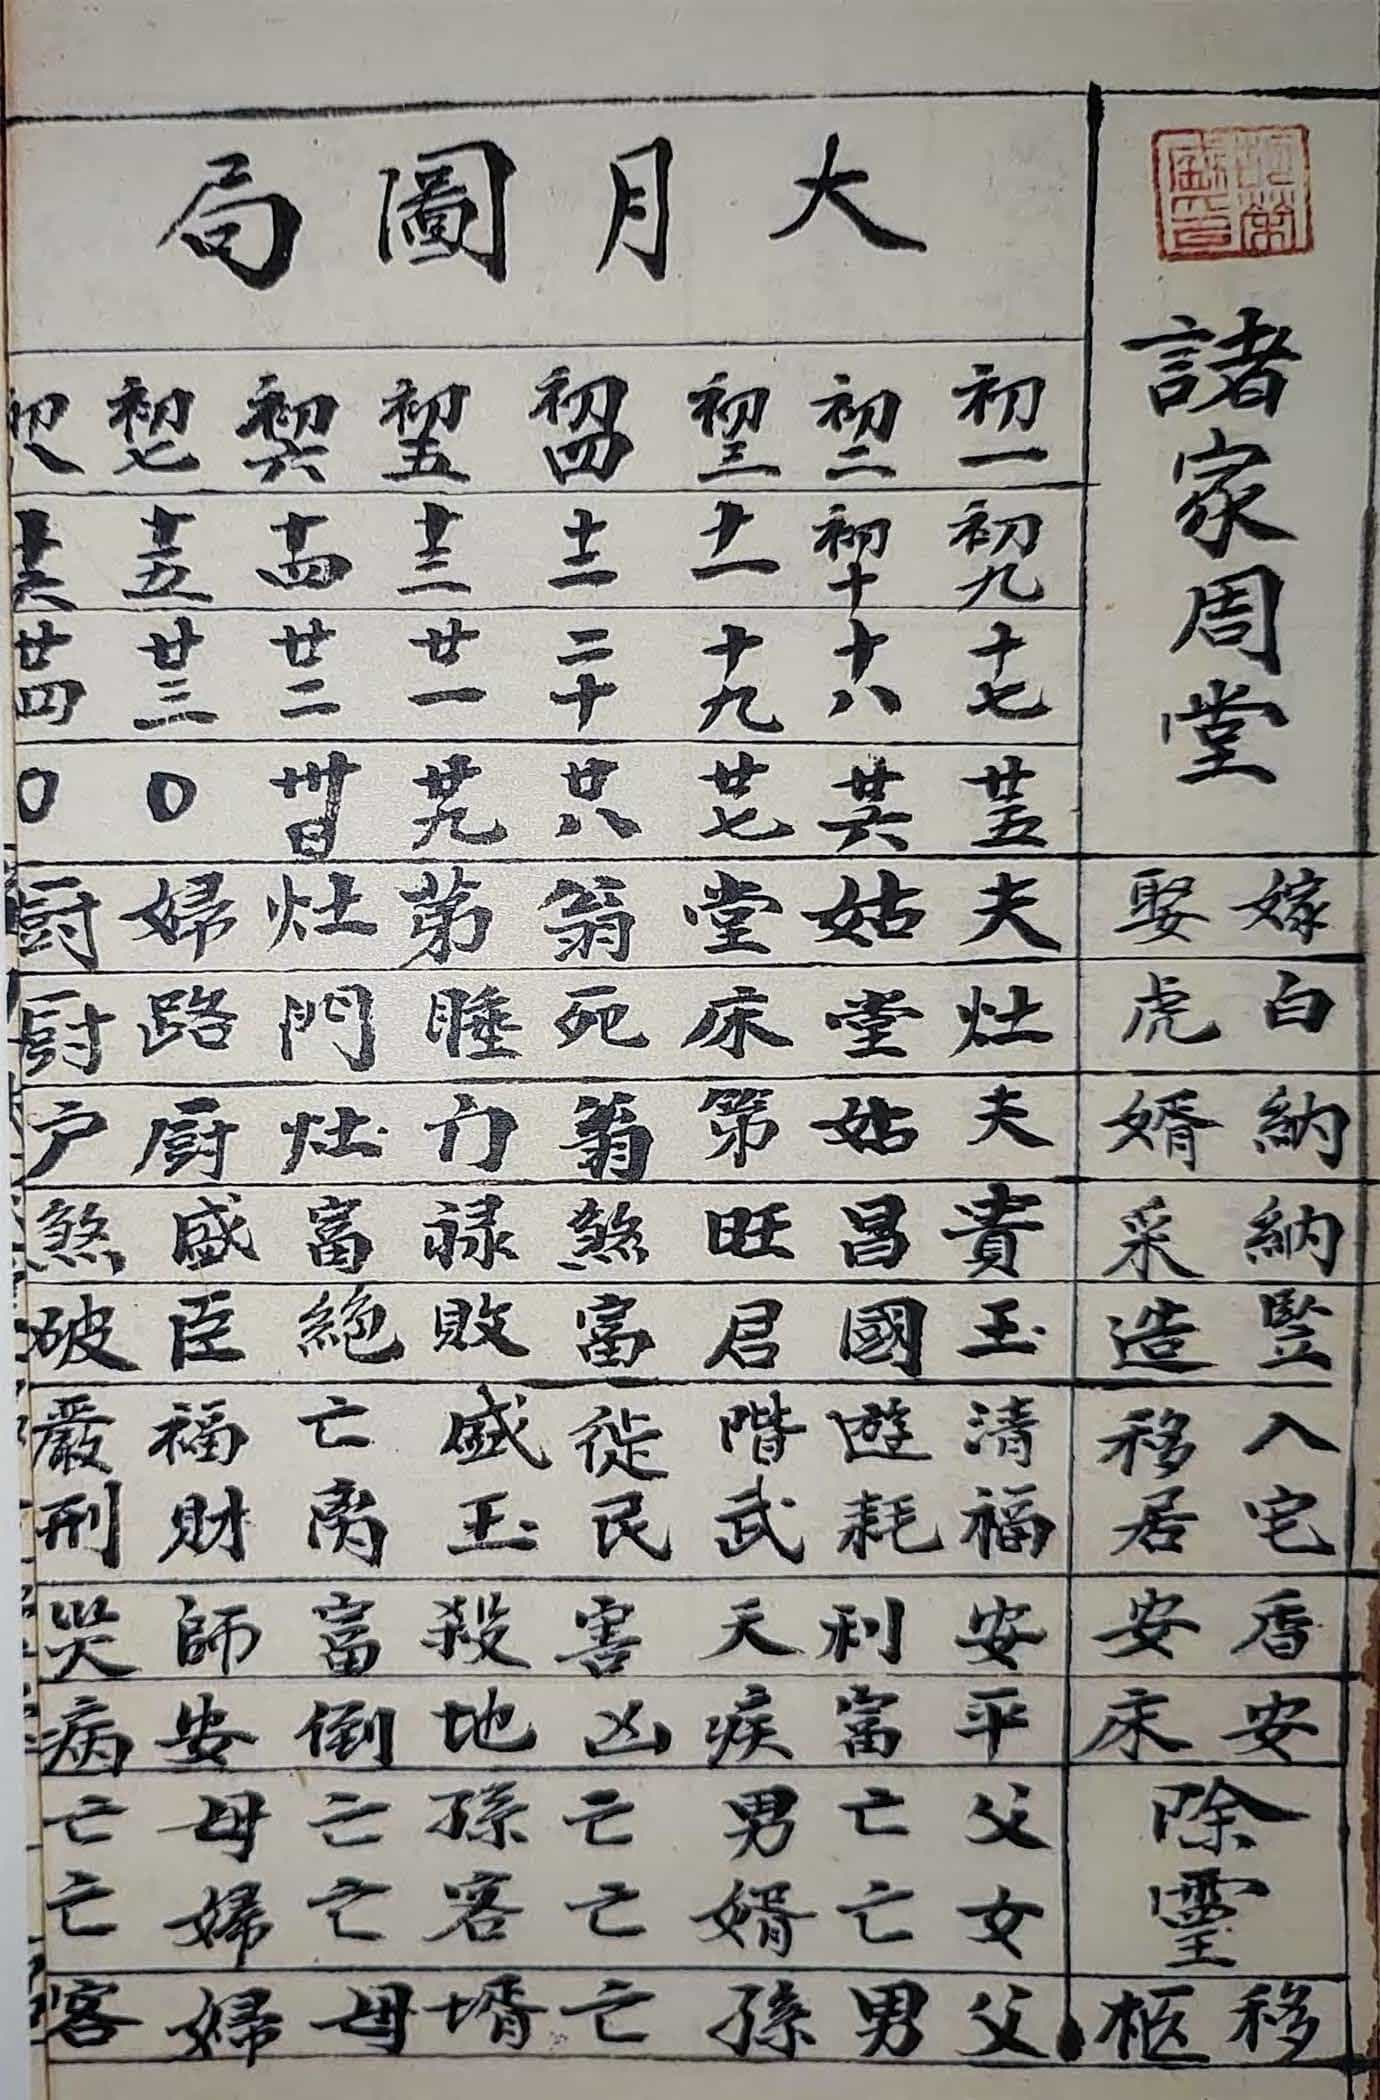 諸家周堂
大月圖局
初一 初二 初三 初四 初五 初六 初七 初八
初九 初十 十一 十二 十三 十四 十五 十六
十七 十八 十九 二十 廿一 廿二 廿三 廿四
廿五 廿六 廿七 廿八 廿九 卅日 〇 〇
嫁娶 夫 姑 堂 翁 苐 灶 婦 厨
白虎 灶 堂 床 死 睡 門 路 厨
納婿 夫 姑 第 翁 门 灶 厨 户
納采 貴 昌 旺 煞 禄 富 盛 煞
豎造 玉 國 君 富 敗 絕 臣 破
入宅 移居 清福 遊耗 階武 徙民 盛玉 亡离 福財 嚴刑
香安 安 利 天 害 殺 富 師 哭
安床 平 富 疾 凶 地 倒 安 病
除靈 父女 亡亡 男婿 亡亡 孫客 亡亡 母婦 亡亡
移柩 父 男 孫 亡 壻 母 婦 客